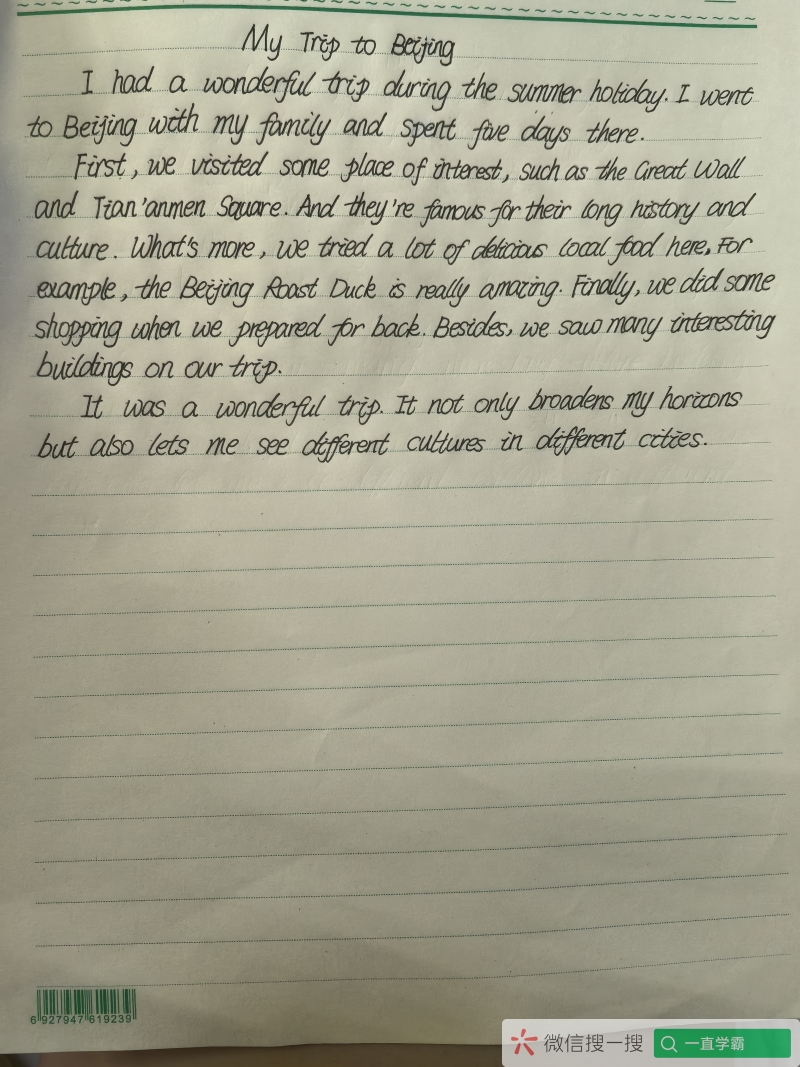 My Trip to Beijing
I had a wonderful trip during the summer holiday. I went
to Beijing with my family and spent five days there.
First, we visited some place of interest, such as the Great Wall
and Tian'anmen Square. And they're famous for their long history and
culture. What's more, we tried a lot of delicious local food here. For
example, the Beijing Roast Duck is really amazing. Finally, we did some
shopping when we prepared for back. Besides, we saw many interesting
buildings on our trip.
It was a wonderful trip. It not only broadens my horizons
but also lets me see different cultures in different cities.
6 927947 619239
微信搜一搜
一直学霸